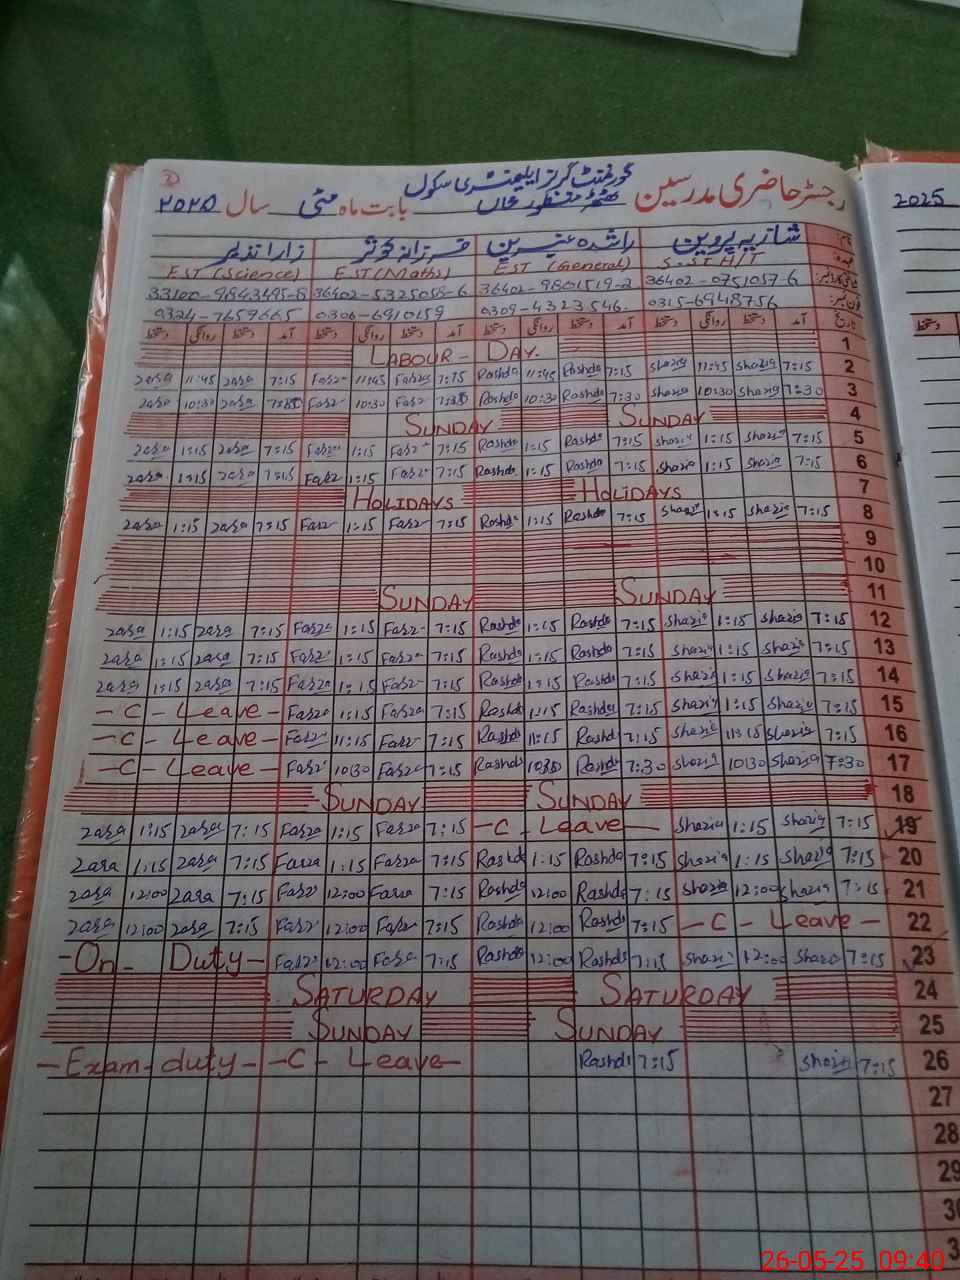 رجسٹر حاضری مدرسین گورنمنٹ گرلز ایلیمنٹری سکول بابت ماہ مئی سال ۲۰۲۵
2025
شازیہ پروین راشدہ نسرین فرزانہ کوثر زارا نذیر
S.S.T H/T EST (General) EST (Maths) EST (Science)
36402-0751057-6 36402-9801519-2 36402-5325058-6 33100-9843495-8
0315-6948756 0309-4323546. 0306-6910159 0324-7659665
تاریخ آمد دستخط روانگی دستخط آمد دستخط روانگی دستخط آمد دستخط روانگی دستخط آمد دستخط روانگی دستخط
LABOUR - DAY. 1
zara 11:45 zara 7:15 Farz 11:45 Farz 7:15 Rashda 11:45 Rashda 7:15 Shazia 11:45 Shazia 7:15 2
zara 10:30 zara Farz 10:30 Farz Rashda 10:30 Rashda 7:30 Shazia 10:30 Shazia 7:30 3
SUNDAY SUNDAY 4
zara 1:15 zara 7:15 Farz 1:15 Farz 7:15 Rashda 1:15 Rashda 7:15 Shazia 1:15 Shazia 7:15 5
zara 1:15 zara 7:15 Farz 1:15 Farz 7:15 Rashda 1:15 Rashda 7:15 Shazia 1:15 Shazia 7:15 6
HOLIDAYS HOLIDAYS 7
zara 1:15 zara 7:15 Farz 1:15 Farz 7:15 Rashda 1:15 Rashda 7:15 Shazia 1:15 Shazia 7:15 8
9
10
SUNDAY SUNDAY 11
zara 1:15 zara 7:15 Farza 1:15 Farz 7:15 Rashda 1:15 Rashda 7:15 Shazia 1:15 Shazia 7:15 12
zara 1:15 zara 7:15 Farz 1:15 Farz 7:15 Rashda 1:15 Rashda 7:15 Shazia 1:15 Shazia 7:15 13
zara 1:15 zara 7:15 Farza 1:15 Farz 7:15 Rashda 1:15 Rashda 7:15 Shazia 1:15 Shazia 7:15 14
- C - Leave - Farza 1:15 Farza 7:15 Rashda 1:15 Rashda 7:15 Shazia 1:15 Shazia 7:15 15
- C - Leave - Farz 11:15 Farz 7:15 Rashda 11:15 Rashda 7:15 Shazia Shazia 7:15 16
- C - Leave - Farz 10:30 Farza 7:15 Rashda 10:30 Rashda 7:30 Shazia 10:30 Shazia 7:30 17
SUNDAY SUNDAY 18
zara 1:15 zara 7:15 Farza 1:15 Farza 7:15 - C - Leave - Shazia 1:15 Shazia 7:15 19
zara 1:15 zara 7:15 Farza 1:15 Farza 7:15 Rashda 1:15 Rashda 7:15 Shazia 1:15 Shazia 7:15 20
zara 12:00 zara 7:15 Farz 12:00 Farza 7:15 Rashda 12:00 Rashda 7:15 Shazia 12:00 Shazia 7:15 21
zara 12:00 zara 7:15 Farz 12:00 Farza 7:15 Rashda 12:00 Rashda 7:15 - C - Leave - 22
- On - Duty - Farz 12:00 Farza 7:15 Rashda 12:00 Rashda 7:15 Shazia 12:00 Shazia 7:15 23
SATURDAY SATURDAY 24
SUNDAY SUNDAY 25
- Exam - duty - - C - Leave - Rashda 7:15 Shazia 7:15 26
27
28
29
26-05-25 09:40